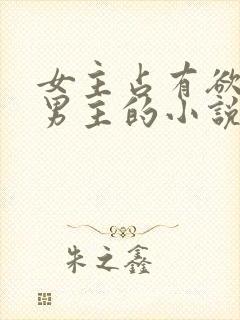 女主占有欲
男主的小説
朱之鑫